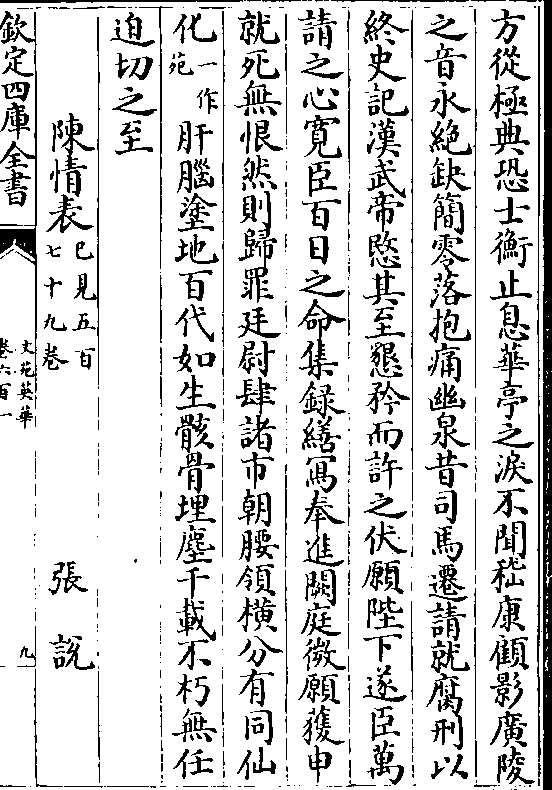 方從極典恐士衡止息華亭之淚不聞嵇康顧影廣陵
之音永絶缺簡零落抱痛幽泉昔司馬遷請就腐刑以
終史記漢武帝愍其至懇矜而許之伏願陛下遂臣萬
請之心寛臣百日之命集録繕寫奉進闕庭微願獲申
就死無恨然則歸罪廷尉肆諸市朝腰領横分有同仙
化一作苑肝腦塗地百代如生骸骨埋塵千載不朽無任
迫切之至
陳情表已見五百七十九卷 張説
欽定四庫全書
文苑英華
卷六百一
九